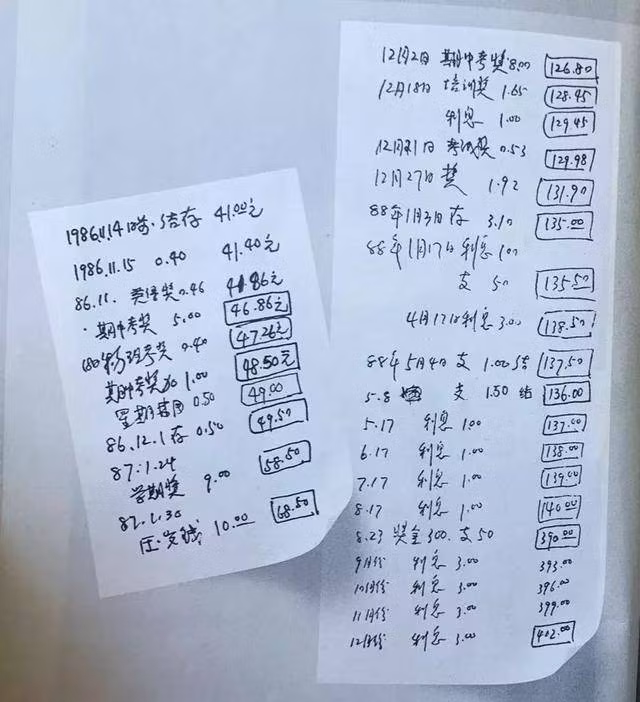 1986.11.14日前·结存 41.00元
1986.11.15 0.40 41.40元
86.11. 英语奖0.46 41.86元
·期中考奖 5.00 46.86元
考奖 0.40 47.26元
期中考奖加 1.00 48.50元
星期 0.50 49.00
86.12.1存 0.50 49.50
87.1.24
学期奖 9.00 58.50
87.1.30
压岁钱 10.00 68.50
12月2日 期中考奖 8.00 126.80
12月18日 培训奖 1.65 128.45
利息 1.00 129.45
12月21日 考试奖 0.53 129.98
12月27日 奖 1.92 131.90
88年1月3日存 3.10 135.00
88年1月17日利息 1.00
支 50 135.50
4月17日利息 3.00 138.50
88年5月4日支 1.00结 137.50
5.8 支 1.50 结 136.00
5.17 利息 1.00 137.00
6.17 利息 1.00 138.00
7.17 利息 1.00 139.00
8.17 利息 1.00 140.00
8.23 奖金300.支50 390.00
9月份 利息 3.00 393.00
10月份 利息 3.00 396.00
11月份 利息 3.00 399.00
12月份 利息 3.00 402.00